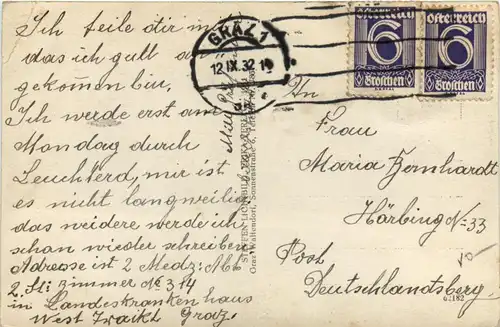 Ich teile dir mit
das ich gutt an
gekomen bin,
Ich werde erst am
Mondag durch
Leuchterd, mir ist
es nicht langweilig
das weidere werde ich
schon wieder schreiben
Adresse ist 2 Medz: Abt
2. St: Zimmer No 314
in Landeskrankenhaus
West Graz,
GRAZ 1
12.IX.32
Österreich
6
Groschen
Österreich
6
Groschen
Graz-Waltendorf, Sonnenstraße 6,
An
Frau
Maria Bernhardt
Hörbing No 33
Post
Deutschlandsberg.